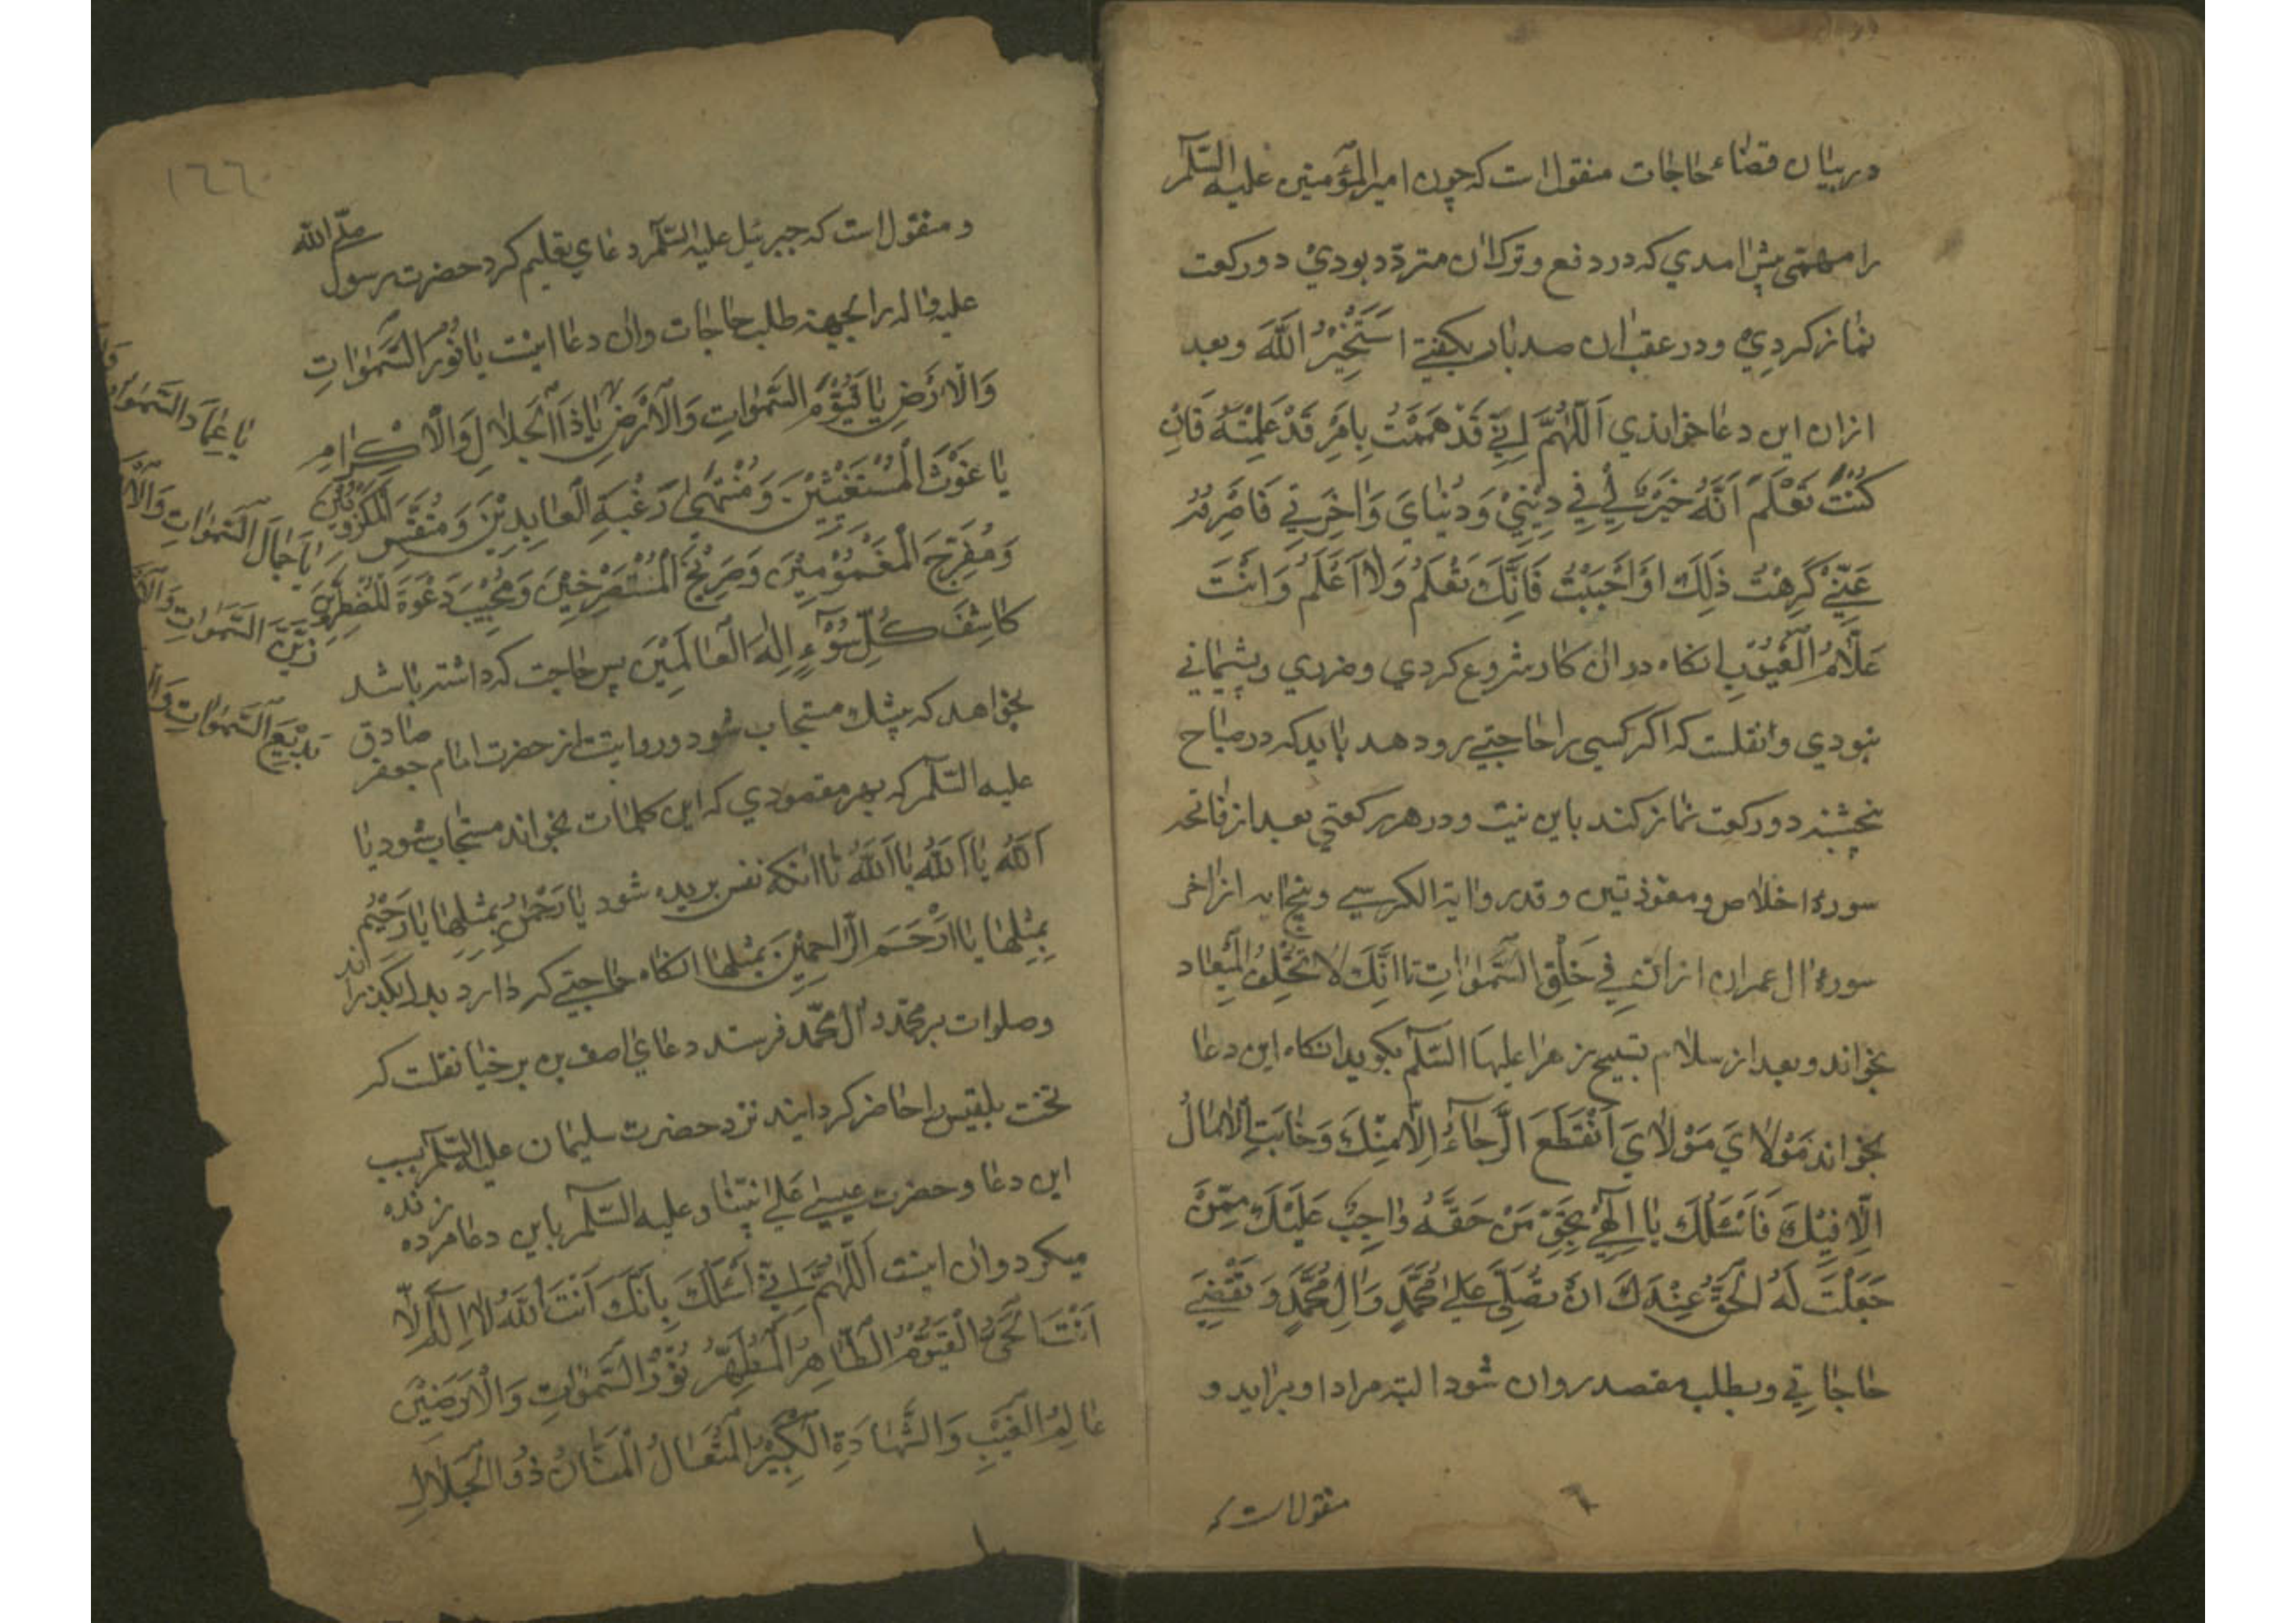 در بیان قضاء حاجات منقول است که چون امیر المؤمنین علیه السّلم
را مهمّی پیش امدي که در دفع و ترک ان متردّد بودي دو رکعت
نماز کردي و در عقب ان صد بار بکفتی اَسْتَخْیِرُ اللّٰهَ و بعد
ازان این دعا خواندي اَللّٰهُمَّ اِنّی قَدْ هَمَمْتُ بِاَمْرٍ قَدْ عَلِمْتَهُ فَاِنْ
کُنْتَ تَعْلَمُ اَنَّهُ خَیْرٌ لي فِي دِیْنِيْ وَ دُنْیايَ وَ اخِرَتي فَاصْرِفْهُ
عَنّيْ کَرِهْتُ ذٰلِکَ اَوْ اَحْبَبْتُ فَاِنَّکَ تَعْلَمُ وَلا اَعْلَمُ وَ اَنْتَ
عَلّامُ الْغُیُوْبِ انکاه در ان کار شروع کردي و ضرري و پشیماني
نبودي و انقلست که اکر کسی را حاجتی رو دهد باید که در صباح
پنجشنبه دو رکعت نماز کند باین نیت و در هر رکعتی بعد از فاتحه
سورهٔ اخلاص و معوّذتین و قدر و ایة الکرسي و پنج ایه از اخر
سورهٔ ال عمران از اِنّ فِي خَلْقِ السَّمٰوٰاتِ تا اِنَّکَ لا تُخْلِفُ الْمیٖعاد
بخواند و بعد از سلام تسبیح زهرا علیها السّلم بکوید انکاه این دعا
بخواند مَوْلايَ مَوْلايَ اَنْقَطَعَ الرَّجاءُ اِلّا مِنْکَ وَ خابَتِ الْامالُ
اِلّا فیْکَ فَاَسْئَلُکَ یا اِلٰهِيْ بِحَقِّ مَنْ حَقُّهُ واجِبٌ عَلَیْکَ مِمَّنْ
جَعَلْتَ لَهُ الْحَقَّ عِنْدَکَ اَنْ تُصَلِّیَ عَلیٰ مُحَمَّدٍ وَ الِ مُحَمَّدٍ وَ تَقْضِيَ
حاجاتي و بطلب مقصد روان شود البته مراد او براید و
منقول است که
١٦٦
و منقول است که جبرئیل علیه السّلم دعاي تعلیم کرد حضرت رسول صلّی الله
علیه واله را بجهة طلب حاجات و ان دعا اینست یا نُورَ السَّمٰوٰاتِ
وَالْاَرْضِ یا قَیُّوْمَ السَّمٰوٰاتِ وَالْاَرْضِ یا ذَا الْجَلالِ وَالْاِکْرامِ
یا غَوْثَ الْمُسْتَغیْثیْنَ وَ مُنْتَهیٰ رَغْبَةِ الْعابِدیْنَ وَ مُنَفِّسَ الْمَکْرُوْبیْنَ
وَ مُفَرِّجَ الْمَغْمُوْمیْنَ وَ صَریْخَ الْمُسْتَصْرِخیْنَ وَ مُجیْبَ دَعْوَةَ الْمُضْطَرّیْنَ
کاشِفَ کُلِّ سُوْءٍ اِلٰهَ الْعالَمیْنَ پس حاجت که داشته باشد
بخواهد که بیشک مستجاب شود و روایتست از حضرت امام جعفر صادق
علیه السّلم که بهر مقصودي که این کلمات بخواند مستجاب شود یا
اَللّٰهُ یا اَللّٰهُ یا اَللّٰهُ تا انکه نفس بریده شود یا رَحْمٰنُ بمثلها یا رَحیْمُ
بِمِثْلِها یا اَرْحَمَ الرّاحِمیْنَ بمثلها انکاه حاجتی که دارد بدل بکذراند
و صلوات بر محمّد و ال محمّد فرستد دعاي اصف بن برخیا نقلست که
تخت بلقیس را حاضر کردانید نزد حضرت سلیمان علیه السّلم بسبب
این دعا و حضرت عیسیٰ عَلی نبیّنا و علیه السّلم باین دعا مرده زنده
میکرد و ان اینست اَللّٰهُمَّ اِنّي اَسْئَلُکَ بِاَنَّکَ اَنْتَ اللّٰهُ لا اِلٰهَ اِلّا
اَنْتَ الْحَيُّ الْقَیُّوْمُ الطّاهِرُ الْمُطَهَّرُ نُوْرُ السَّمٰوٰاتِ وَالْاَرَضیْنَ
عالِمُ الْغَیْبِ وَالشَّهادَةِ الْکَبیْرُ الْمُتَعالُ الْمَنّانُ ذُو الْجَلالِ
یا عِمادَ السَّمٰوٰاتِ
یا جَمالَ السَّمٰوٰاتِ وَالْا
زَیْنَ السَّمٰوٰاتِ وَالْا
بَدیْعَ السَّمٰوٰاتِ وَا